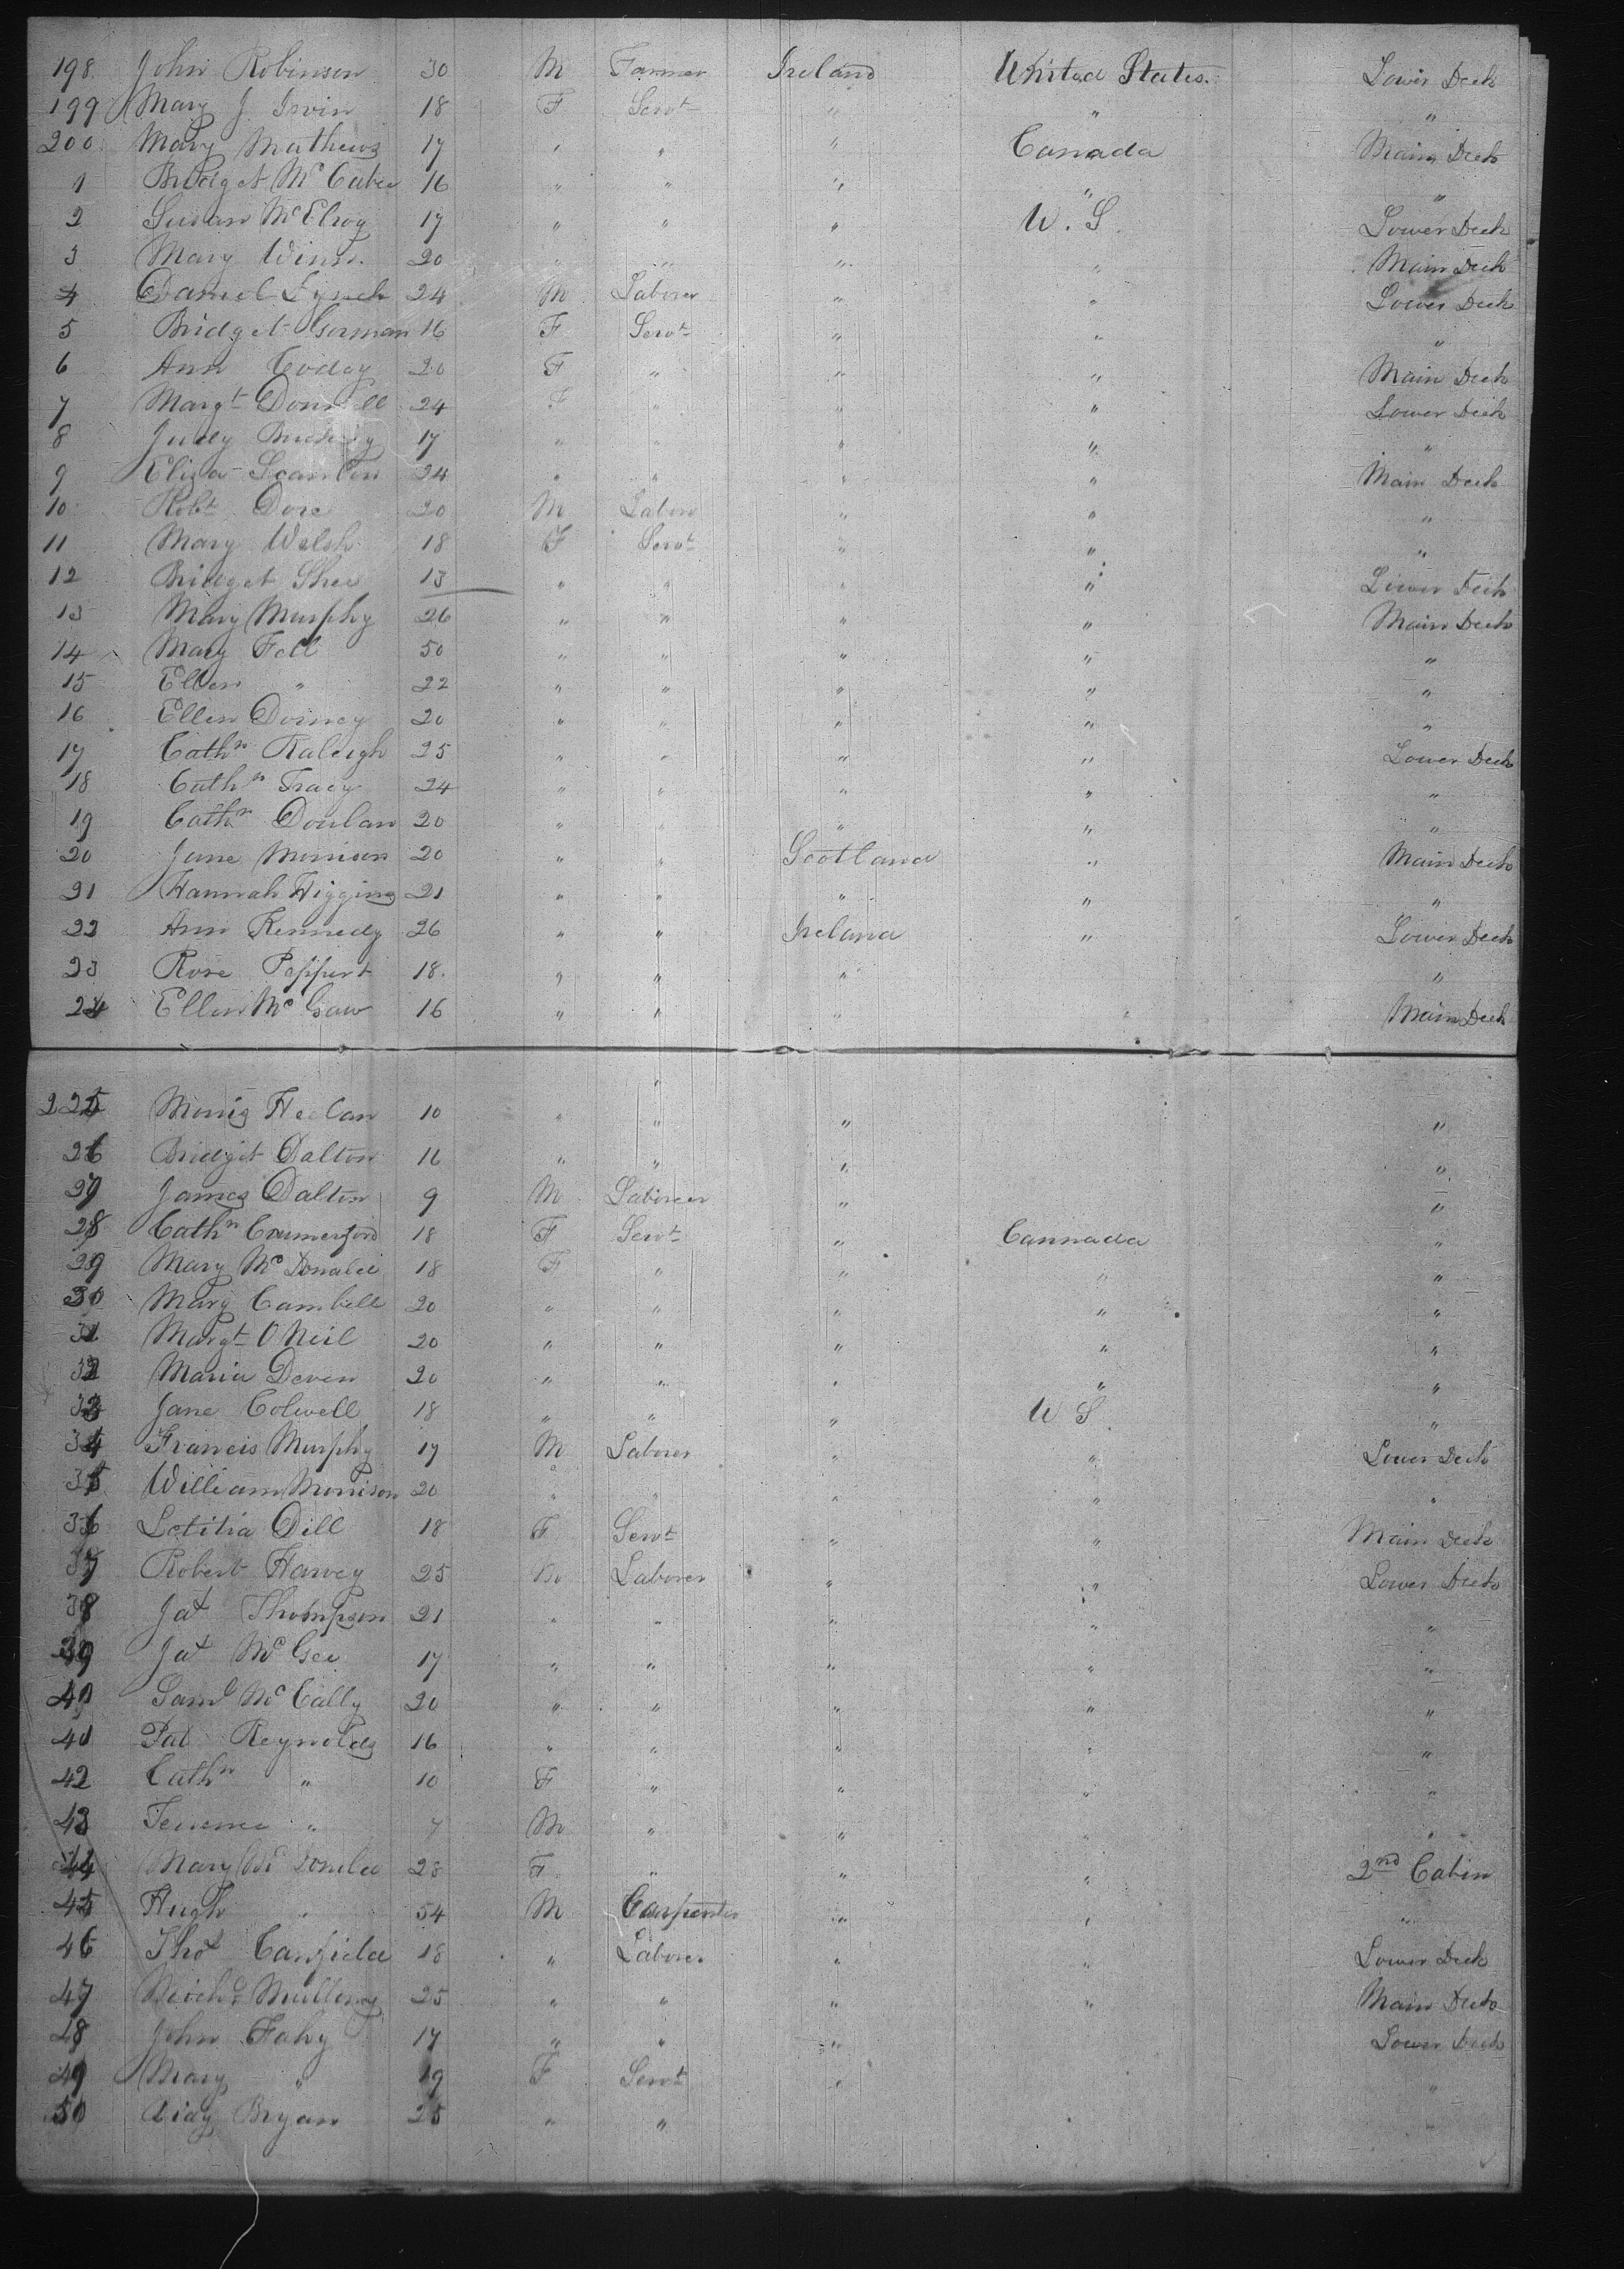 198. John Robinson 30 M Farmer Ireland United States. Lower Deck
199 Mary J. Irvin 18 F Servt " " "
200. Mary Mathews 17 " " " Canada Main Deck
1 Bridget McCabe 16 " " " " "
2 Susan McElroy 17 " " " U. S. Lower Deck
3 Mary 20 " " " " Main Deck
4 Daniel Lynch 24 M Laborer " " Lower Deck
5 Bridget Gorman 16 F Servt " " "
6 Ann Codey 20 F " " " Main Deck
7 Margt Donnell 24 F " " " Lower Deck
8 Judy 17 " " " " "
9 Eliza Scanlon 24 " " " " Main Deck
10 Robt Dore 20 M Labor " " "
11 Mary Welsh 18 F Servt " " "
12 Bridget Shee 13 " " " " Lower Deck
13 Mary Murphy 26 " " " " Main Deck
14 Mary Fell 50 " " " " "
15 Ellen " 22 " " " " "
16 Ellen Dorney 20 " " " " "
17 Cathn Raleigh 25 " " " " Lower Deck
18 Cathn Tracy 24 " " " " "
19 Cathn Doulan 20 " " " " "
20 Jane Morrison 20 " " Scotland " Main Deck
21 Hannah Higgins 21 " " " " "
22 Ann Kennedy 26 " " Ireland " Lower Deck
23 Rose Peppert 18. " " " "
24 Ellen McGaw 16 " " " " Main Deck
225 Heelan 10 " " " "
26 Bridgit Dalton 16 " " " "
27 James Dalton 9 M Laborer " "
28 Cathn 18 F Servt " Cannada "
29 Mary McDonald 18 F " " " "
30 Mary Cambell 20 " " " " "
31 Margt O Neil 20 " " " " "
32 Maria Deven 20 " " " " "
33 Jane Colwell 18 " " " U S "
34 Francis Murphy 17 M Laborer " " Lower Deck
35 William Morrison 20 " " " " "
36 Letitia Dill 18 F Servt " " Main Deck
37 Robert Harvey 25 M Laborer " " Lower Deck
38 Jas Thompson 21 " " " " "
39 Jas McGee 17 " " " " "
40 Saml McCally 20 " " " " "
41 Pat Reynolds 16 " " " " "
42 Cathn " 10 F " " " "
43 Terrence " 7 M " " " "
44 Mary McDonald 28 F " " " 2nd Cabin
45 Hugh " 54 M Carpenter " " "
46 Thos Canfield 18 " Laborer " " Lower Deck
47 Michl 25 " " " " Main Deck
48 John Fahy 17 " " " Lower Deck
49 Mary " 19 F Servt " "
50 Biddy Bryan 25 " " "